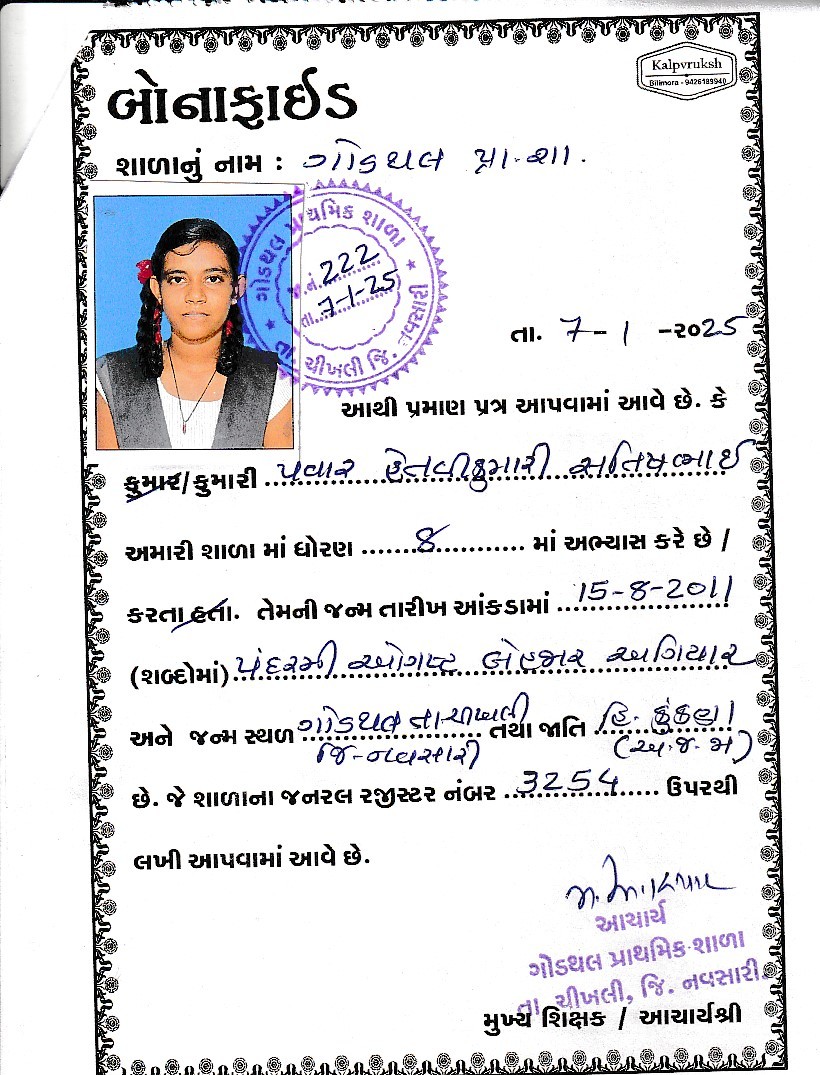 Kalpvruksh
Bilimora - 9426189940
બોનાફાઈડ
શાળાનું નામ : ગોડથલ પ્રા.શા.
ગોડથલ પ્રાથમિક શાળા
જા.નં. 222
તા. 7-1-25
તા. ચીખલી જિ. નવસારી
તા. 7-1-૨૦25
આથી પ્રમાણ પત્ર આપવામાં આવે છે. કે
કુમાર/કુમારી પવાર હેતલીકુમારી સતિષભાઈ
અમારી શાળા માં ધોરણ 8 માં અભ્યાસ કરે છે /
કરતા હતા. તેમની જન્મ તારીખ આંકડામાં 15-8-2011
(શબ્દોમાં) પંદરમી ઓગષ્ટ બેહજાર અગિયાર
અને જન્મ સ્થળ ગોડથલ તા.ચીખલી તથા જાતિ હિ. કુંકણા
જિ-નવસારી (અ.જ.જા)
છે. જે શાળાના જનરલ રજીસ્ટર નંબર 3254 ઉપરથી
લખી આપવામાં આવે છે.
આચાર્ય
ગોડથલ પ્રાથમિક શાળા
તા. ચીખલી, જિ. નવસારી.
મુખ્ય શિક્ષક / આચાર્યશ્રી